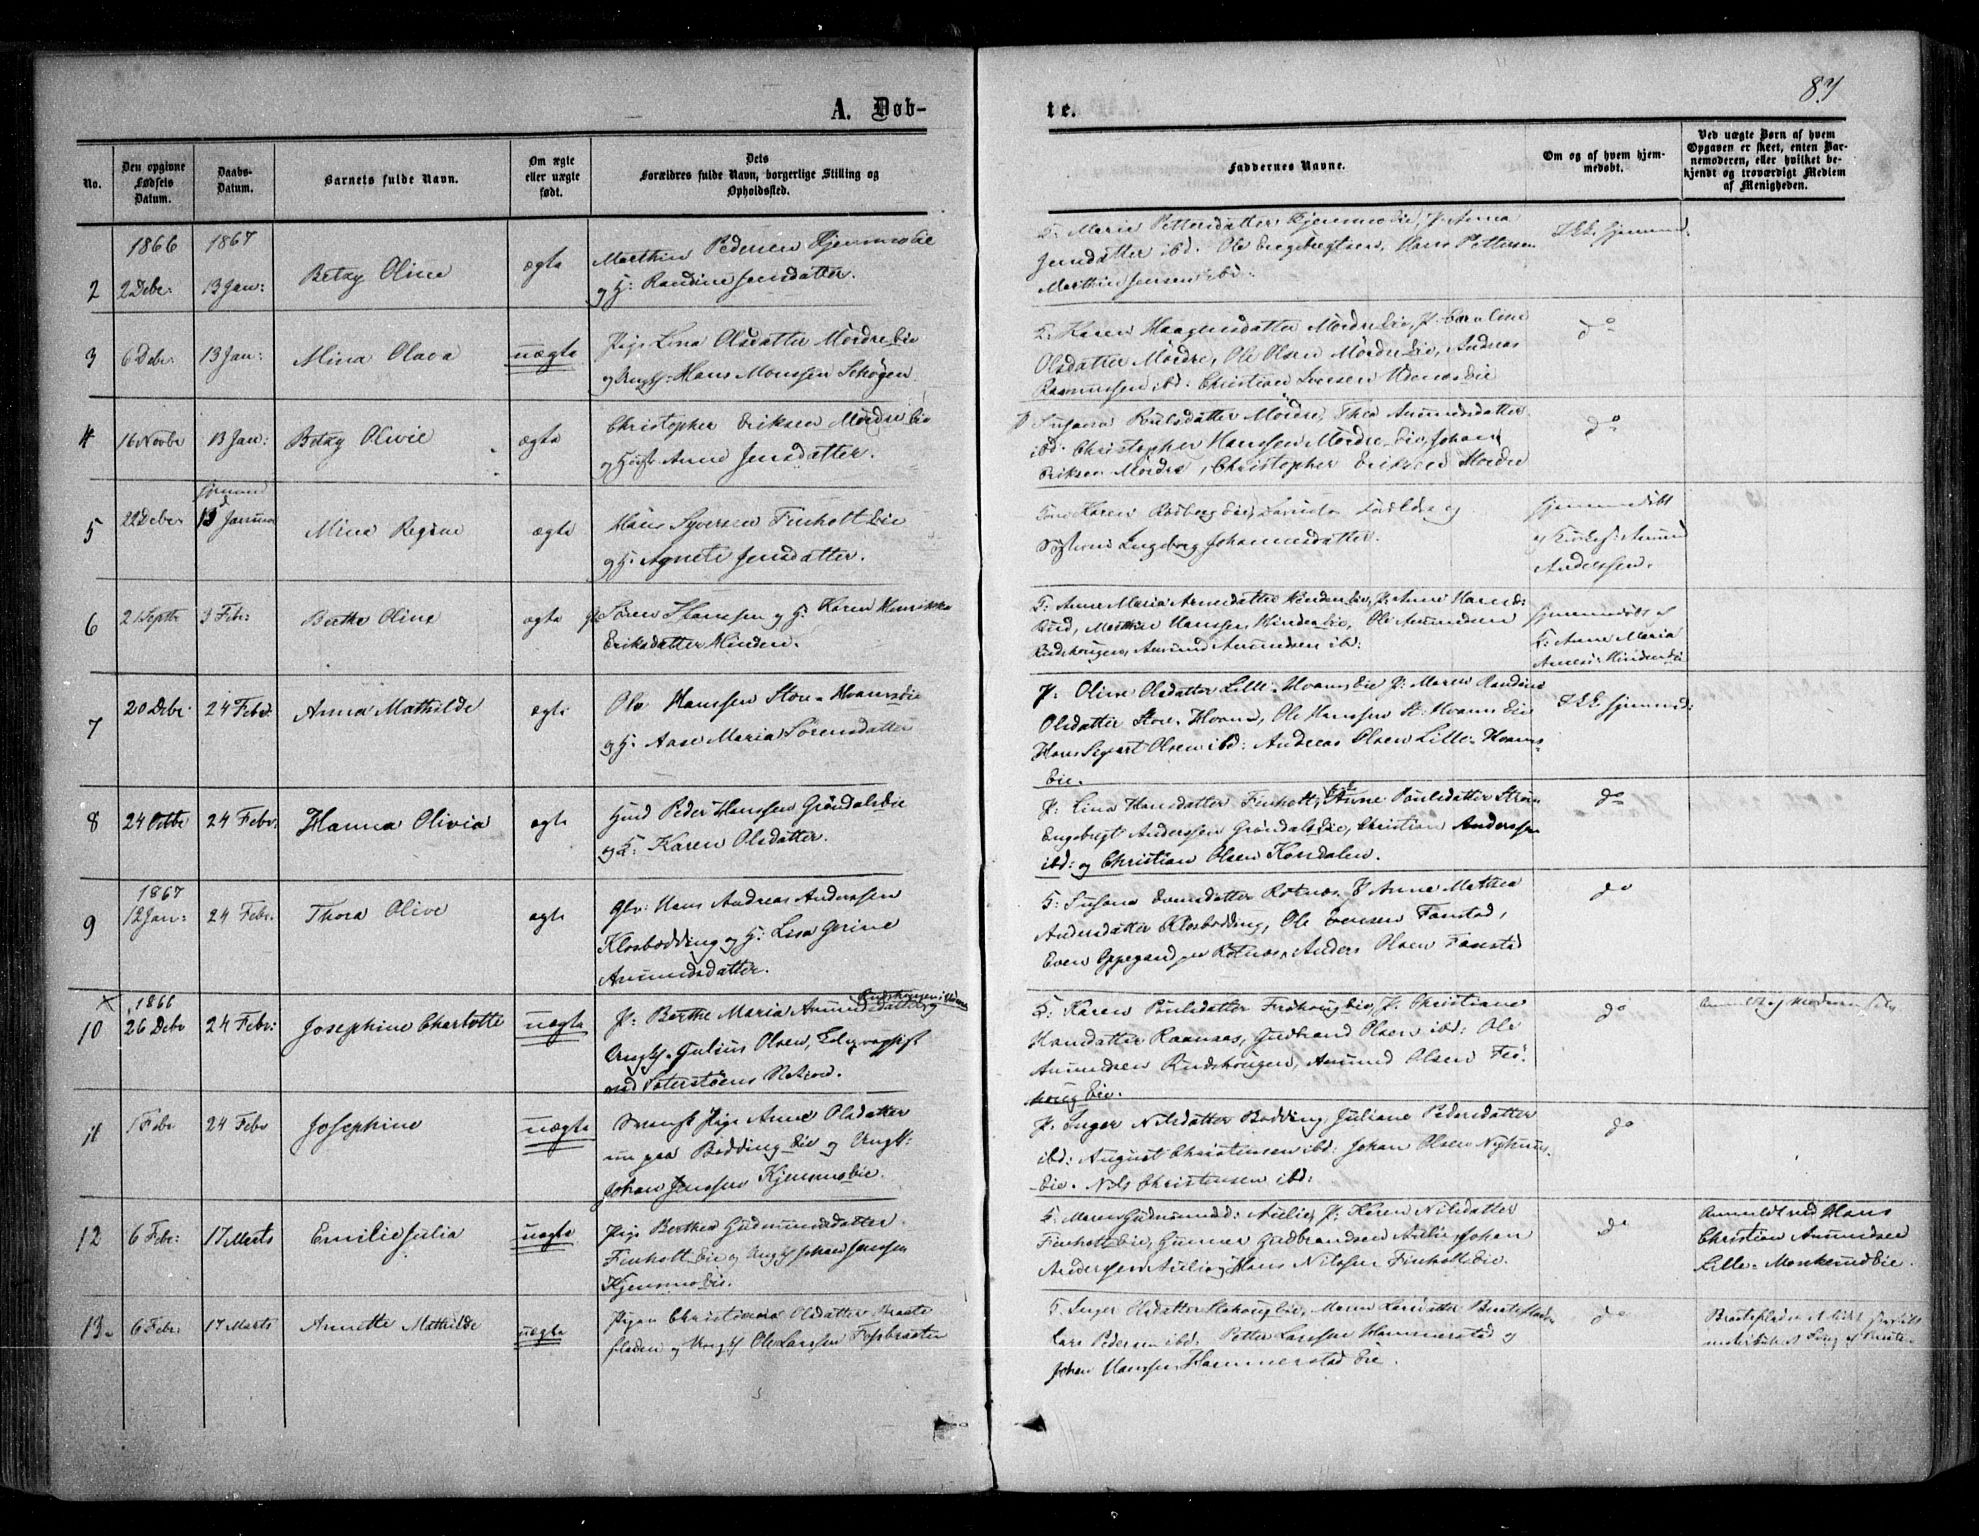 83
A. Døb-
te.
No.
Den opgivne Fødsels Datum.
Daabs-Datum.
Barnets fulde Navn.
Om ægte eller uægte født.
Dets Forældres fulde Navn, borgerlige Stilling og Opholdssted.
Faddernes Navne.
Om og af hvem hjemmedøbt.
Ved uægte Børn af hvem Opgaven er skeet, enten Barnemoderen, eller hvilket bekjendt og troværdigt Medlem af Menigheden.
1866 1867
2 2 Debr: 13 Jan: Betzy Oline ægte
Marthin Pedersen Kjensmoeie
og H: Randine Jensdatter.
Marie Pettersdatter Kjensmoeie, P: Anna
Jensdatter ibd. Ole Engebregtsen, Hans Pettersen
Marthin Jensen ibd.
Ikke hjemmed:
3 6 Debr 13 Jan: Mina Olava uægte
Pige Lina Olsdatter Mørdre Eie
og Ungk: Hans Monssen Schøgen
K: Karen Haagensdatter Mørdre Eie, P: Caroline
Olsdatter Mørdre, Ole Olsen Mørdre Eie, Andreas
Rasmussen ibd. Christian Iversen
do
4 16 Novbr 13 Jan: Betzy Olivie ægte
Christopher Eriksen Mørdre Eie
og Hust Anne Jensdatter.
P Susana Poulsdatter Mørdre, Thea Amundsdatter
ibd. Christopher Hanssen Mørdre Eie, Johan
Eriksen Mørdre, Christopher Eriksen Mordre
do
5 22 Debr 13 Januar Mina Regine ægte
Hans Syversen Finholt Eie
og H. Agnete Jensdatter.
Ingeborg Johannesdatter.
Hjemmedøbt
af Kirkes: Amund
Anderssen.
6 2 Septbr 3 Febr: Berthe Oline ægte
Søren Hanssen og H: Karen Henrikka
Eriksdatter Hinden.
K: Anne Maria Arnesdatter Hinden Eie, P: Anne Hansd:
Rud, Marthin Hanssen Hinden Eie, Ole Amundsen
Rudshougen, Amund Amundsen ibd:
hjemmedøbt af
K: Anne Maria
Arnesd: Hinden Eie
7 20 Debr 24 Febr: Anna Mathilde ægte
Ole Hanssen Store-Hvamseie
og H: Aase Maria Sørensdatter
P: Oline Olsdatter Lille-Hvamseie P: Maren Randine
Olsdatter Store-Hvam, Ole Hanssen St: Hvams Eie
Hans Sigvart Olsen ibd: Andreas Olsen Lille-Hvams-
Eie.
Ikke hjemmed:
8 24 Octbr 24 Febr: Hanna Olivia ægte
Husmd Peder Hanssen Grøndalseie
og H: Karen Olsdatter.
P: Lina Hansdatter Finholt, Anne Poulsdatter Strøm
Engebregt Anderssen Grøndalseie, Christian Anderssen
ibd: og Christian Olsen Korsdalen.
do
1867
9 12 Jan: 24 Febr. Thora Olive ægte
Hans Andreas Anderssen
Klosbødding og H: Lisa Gerine
Amundsdatter.
K: Susana Evensdatter Rotnæs, P Anne Mathea
Andersdatter Klosbødding, Ole Evensen Fonstad,
Even Oppegaard Rotnæs, Anders Olsen Fonstad
do
1866
10 26 Debr 24 Febr: Josephine Charlotte uægte
P: Berthe Maria Amundsdatter Rudshougen
Ungk. Julius Olsen,
K: Karen Poulsdatter Frøhoug Eie, P: Christiane
Hansdatter Raanaas, Gudbrand Olsen ibd: Ole
Amundsen Rudshougen, Amund Olsen Frø-
houg Eie.
do
Anmeldt af Moderen
11 1 Febr 24 Febr Josephine uægte
Svensk Pige Anne Olsdatter
nu paa Bødding Eie og Ungk:
Johan Jenssen Kjensmoeie.
P. Inger Nilsdatter Bødding, Juliane Pedersdatter
ibd: August Christensen ibd: Johan Olsen Nyhuus-
Eie. Nils Christensen ibd:
do
12 6 Febr: 17 Marts Emilie Julia uægte
Pige Berthe Gudmundsdatter
Finholt Eie og Ungk Johan Jenssen
Kjensmo Eie.
K: Maren Gudmundsd: Aulie, P: Karen Nilsdatter
Finholt Eie, Gunner Gudbrandsen Aulie, Johan
Andersen Aulie og Hans Nilssen Finholt Eie.
do
Anmeldt ved Hans
Christian Amundsen
Lille-Monkerud Eie.
13. 6 Febr: 17 Marts Annette Mathilde uægte
Pigen Christiana Olsdatter Braate
fladen og Ungk Ole Larssen Fossbraaten
K. Inger Olsdatter Eie, Maren Larsdatter
Lars Pedersen ibd: Petter Larssen Hammerstad og
Johan Hanssen Hammerstad Eie.
do